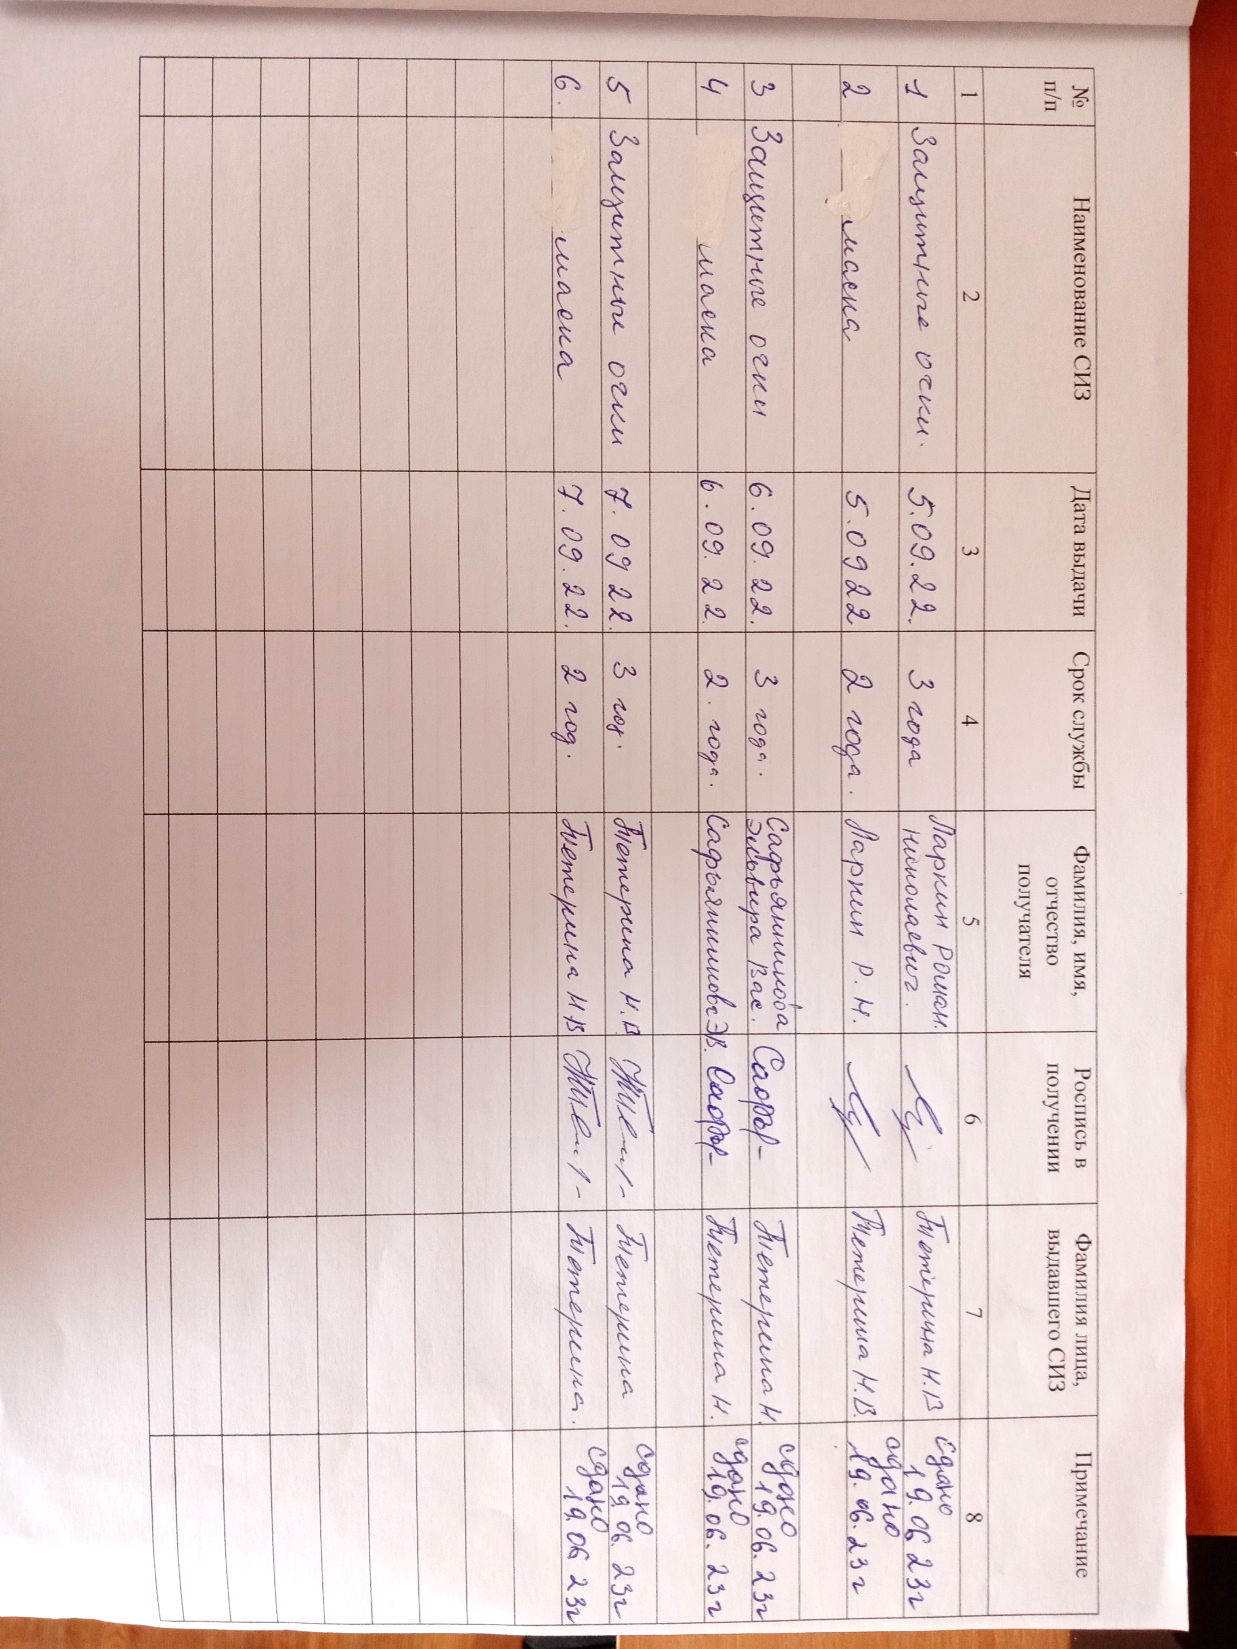 № п/п Наименование СИЗ Дата выдачи Срок службы Фамилия, имя, отчество получателя Роспись в получении Фамилия лица, выдавшего СИЗ Примечание
1 2 3 4 5 6 7 8
1 Защитные очки. 5.09.22. 3 года Ларкин Роман. Николаевич. Тетерина Н.В сдано 19.06 23г
2 маска 5.0922 2 года. Ларкин Р.Н. Тетерина Н.В. сдано 19.06.23г
3 Защитные очки 6.09.22. 3 года. Сафьянникова Эльвира Вас. Сафьр- Тетерина Н. сдано 19.06.23г
4 маска 6.09.22. 2. года. Сафьянникова Э.В. Сафьр- Тетерина Н. сдано 19.06.23г
5 Защитные очки 7.0922. 3 год. Тетерина Н.В. Тетерина сдано 19.06.23г
6. маска 7.09.22. 2 год. Тетерина Н.В Тетерина. сдано 19.06 23г